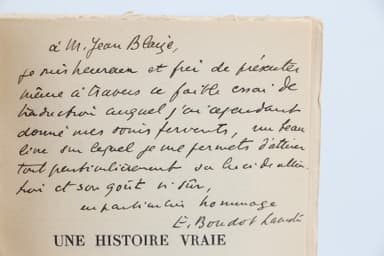 à M. Jean Blaize,
je suis heureux et fier de présenter
même à travers ce faible essai de
traduction auquel j'ai cependant
donné mes soins fervents, un beau
livre sur lequel je me permets d'attirer
tout particulièrement sa lucide atten-
tion et son goût si sûr,
en particulier hommage
E. Boudot Lamotte
UNE HISTOIRE VRAIE